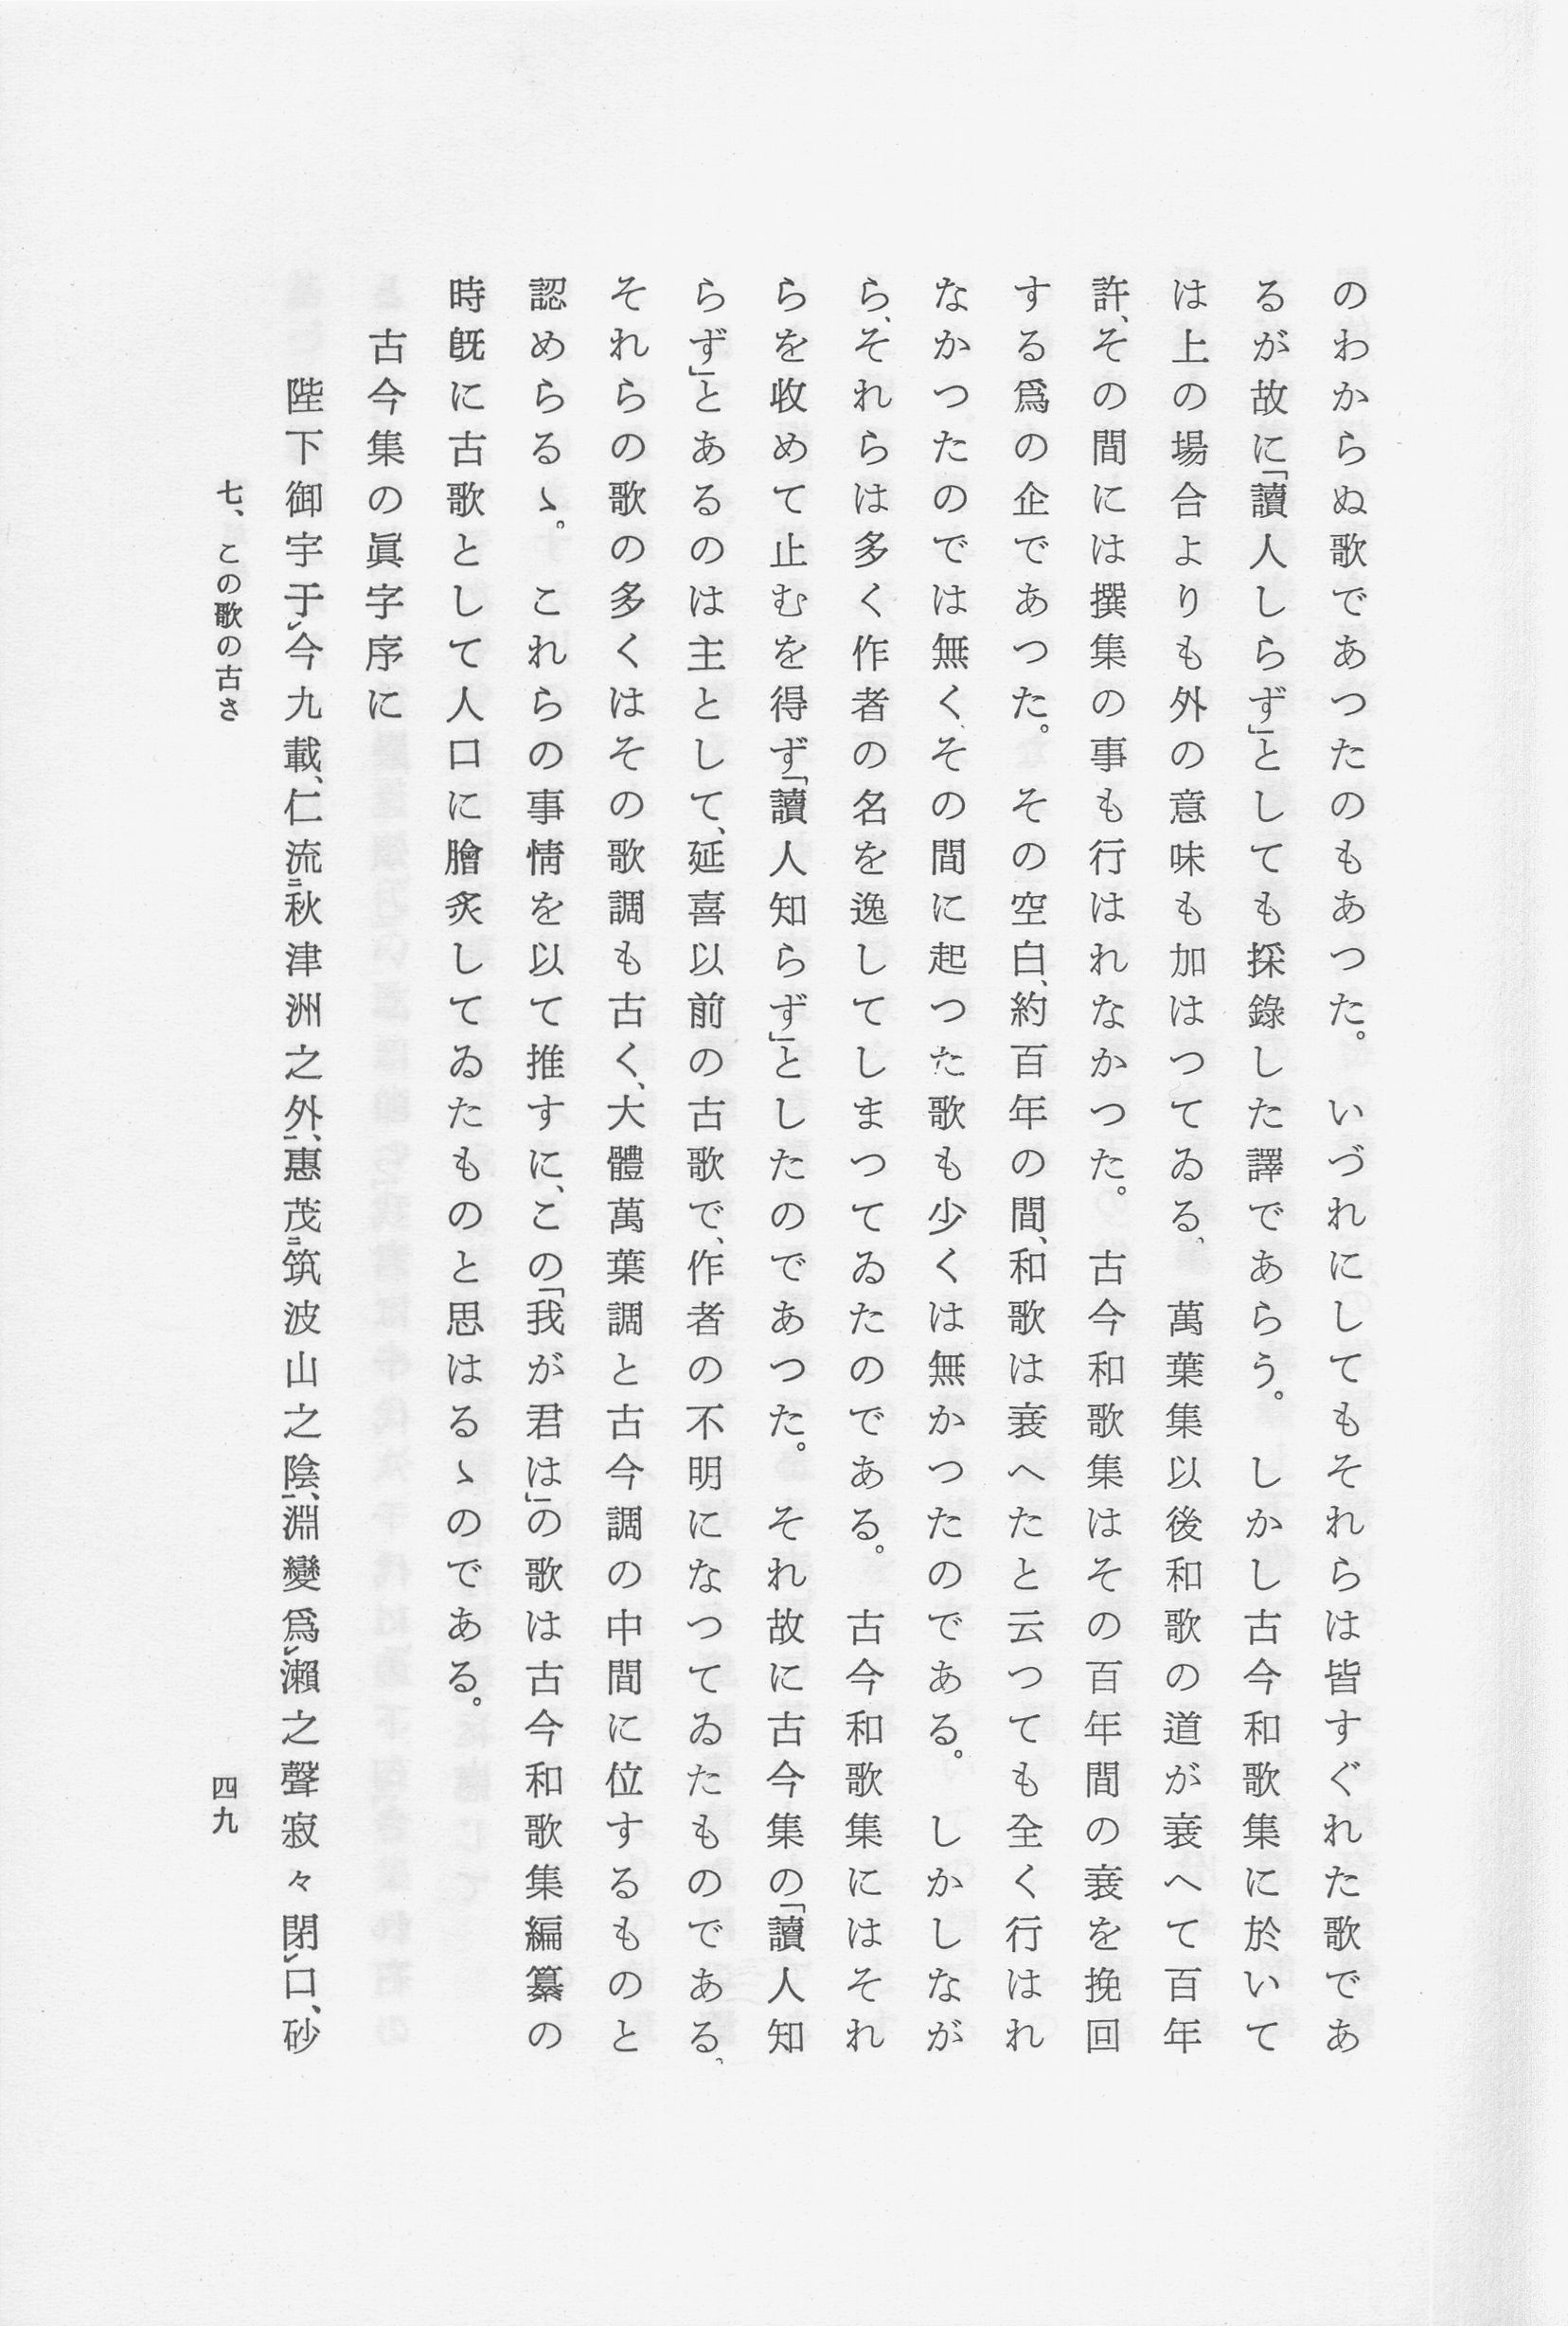 のわからぬ歌であつたのもあつた。いづれにしてもそれらは皆すぐれた歌であ
るが故に「讀人しらず」としても採錄した譯であらう。しかし古今和歌集に於いて
は上の場合よりも外の意味も加はつてゐる、萬葉集以後和歌の道が衰へて百年
許、その間には撰集の事も行はれなかつた。古今和歌集はその百年間の衰を挽回
する爲の企であつた。その空白、約百年の間、和歌は衰へたと云つても全く行はれ
なかつたのでは無く、その間に起つた歌も少くは無かつたのである。しかしなが
ら、それらは多く作者の名を逸してしまつてゐたのである。古今和歌集にはそれ
らを收めて止むを得ず「讀人知らず」としたのであつた。それ故に古今集の「讀人知
らず」とあるのは主として、延喜以前の古歌で、作者の不明になつてゐたものである、
それらの歌の多くはその歌調も古く、大體萬葉調と古今調の中間に位するものと
認めらるゝ。これらの事情を以て推すに、この「我が君は」の歌は古今和歌集編纂の
時旣に古歌として人口に膾炙してゐたものと思はるゝのである。
古今集の眞字序に
陛下御宇于㆑今九載、仁流㆓秋津洲之外㆒、惠茂㆓筑波山之陰㆒、淵變爲㆑瀨之聲寂々閉㆑口、砂
七、この歌の古さ
四九